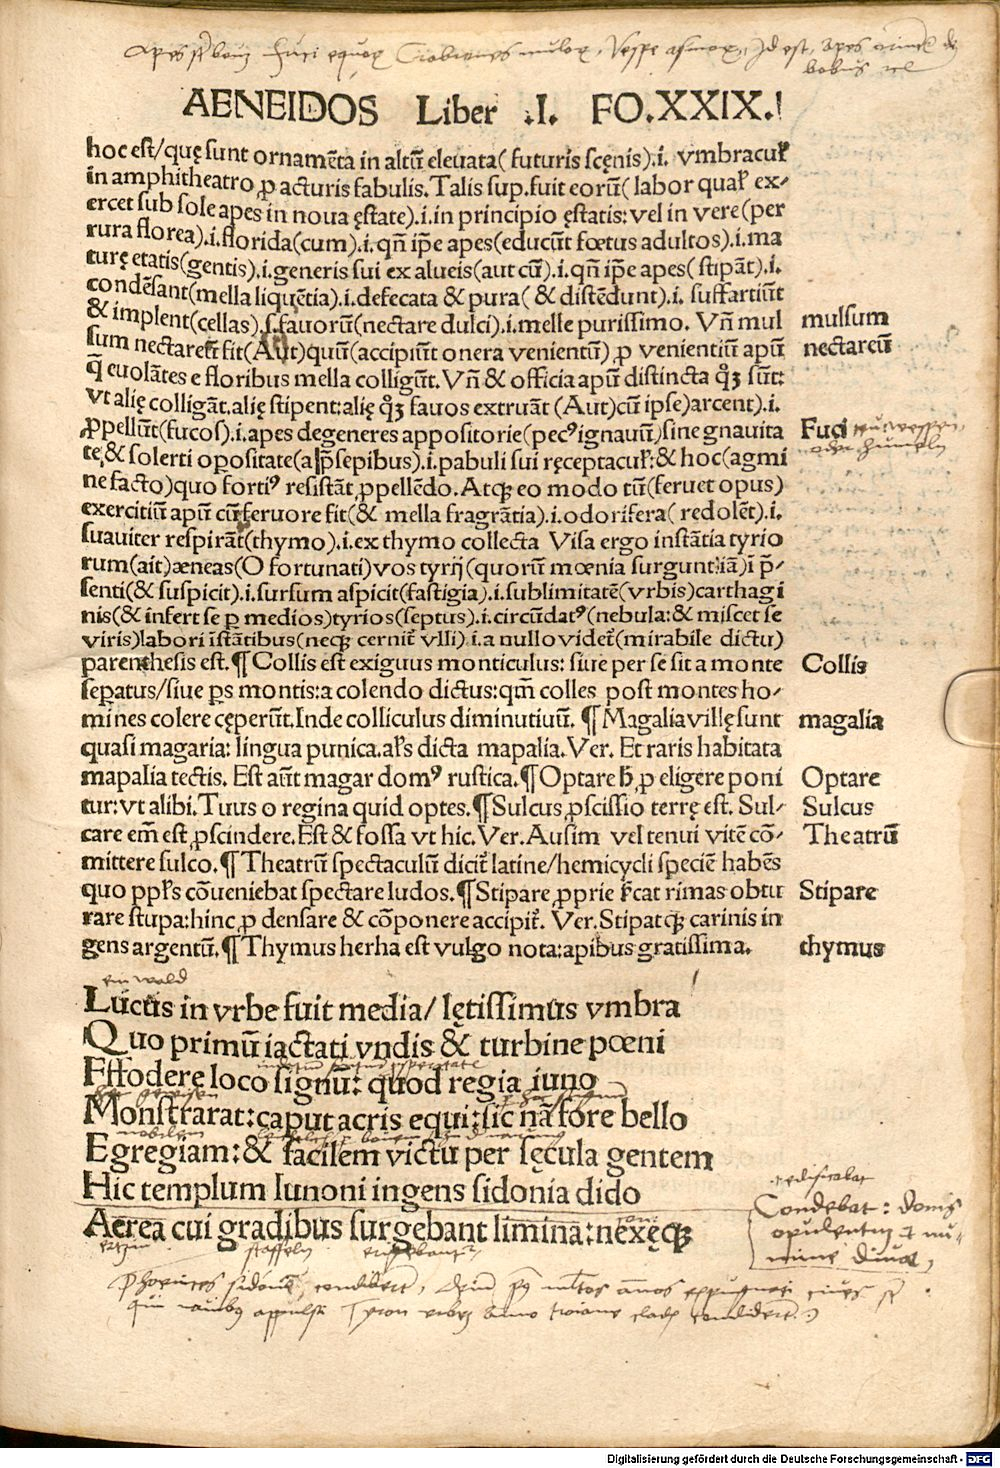 Apes sunt boum Fuci equorum Crabrones mulorum, Vespe asinorum, Id est, apes
bobus
AENEIDOS Liber .I. FO.XXIX.
hoc est/quę sunt ornamēta in altū eleuata( futuris scęnis).i. vmbracuł
in amphitheatro ꝓ acturis fabulis. Talis sup. fuit eorū( labor quał ex-
ercet sub sole apes in noua ęstate).i.in principio ęstatis: vel in vere(per
rura florea).i.florida(cum).i.qn̄ ip̄e apes(educūt fœtus adultos).i.ma
turę etatis(gentis).i.generis sui ex alueis(aut cū).i.qn̄ ip̄e apes( stipāt).i.
condēsant(mella liquētia).i.defecata & pura( & distēdunt).i. suffartiūt
& implent(cellas).s.fauorū(nectare dulci).i.melle purissimo. Vn̄ mul mulsum
sum nectareū fit(Aut)quū(accipiūt onera venientū) ꝓ venientiū apū nectareū
q̄ euolātes e floribus mella colligūt. Vn̄ & officia apū distincta qꝫ sūt:
vt alię colligāt. alię stipent: alię qꝫ fauos extruāt (Aut)cū ipse)arcent).i.
ꝓpellūt(fucos).i.apes degeneres appositorie(pecꝰ ignauū)sine gnauita Fuci
te & solerti oꝑositate(a p̄sepibus).i.pabuli sui ręceptacuł: & hoc(agmi
ne facto)quo fortiꝰ resistāt ꝓpellēdo. Atqꝫ eo modo tū(feruet opus)
exercitiū apū cū feruore fit(& mella fragrātia).i.odorifera( redolēt).i.
suauiter respirāt(thymo).i.ex thymo collecta Visa ergo instātia tyrio
rum(ait)æneas(O fortunati)vos tyrij(quorū mœnia surgunt iā)i p̄-
senti(& suspicit).i.sursum aspicit(fastigia).i.sublimitatē(vrbis)carthagi
nis(& infert se ꝑ medios)tyrios(septus).i.circūdatꝰ(nebula: & miscet se
viris)labori īstātibus(neqꝫ cernit̄ vlli).i.a nullo videt̄(mirabile dictu)
parenthesis est. ¶ Collis est exiguus monticulus: siue per se sit a monte Collis
seꝑatus/siue ꝑs montis: a colendo dictus: qm̄ colles post montes ho-
mines colere cęperūt. Inde colliculus diminutiuū. ¶ Magalia villę sunt magalia
quasi magaria: lingua punica. ałs dicta mapalia. Ver. Et raris habitata
mapalia tectis. Est aūt magar domꝰ rustica. ¶ Optare ħ ꝓ eligere poni Optare
tur: vt alibi. Tuus o regina quid optes. ¶ Sulcus ꝓscissio terrę est. Sul- Sulcus
care em̄ est ꝓscindere. Est & fossa vt hic. Ver. Ausim vel tenui vitē cō- Theatrū
mittere sulco. ¶ Theatrū spectaculū dicit̄ latine/hemicycli speciē habēs
quo ppłs cōueniebat spectare ludos. ¶ Stipare ꝓprie ſꝰcat rimas obtu Stipare
rare stupa: hinc ꝓ densare & cōponere accipit̄. Ver. Stipatqꝫ carinis in
gens argentū. ¶ Thymus herha est vulgo nota: apibus gratissima. thymus
ein wald
Lucus in vrbe fuit media/ lętissimus vmbra
Quo primū iactati vndis & turbine pœni
Effodere loco signū: quod regia iuno
Monstrarat: caput acris equi: sic nā fore bello
nobilem
Egregiam: & facilem victu per sęcula gentem
Hic templum Iunoni ingens sidonia dido
edificabat
Condebat: donis
opulentum et nu-
mine divae,
Aerea cui gradibus surgebant limina: nexęqꝫ
staffeln
Phoenices Sidonem condiderunt, Deinde post multos annos expugnati cives sunt
qui navibus appulsi Tyron urbem anno troiane cladis condiderunt
Digitalisierung gefördert durch die Deutsche Forschungsgemeinschaft - DFG